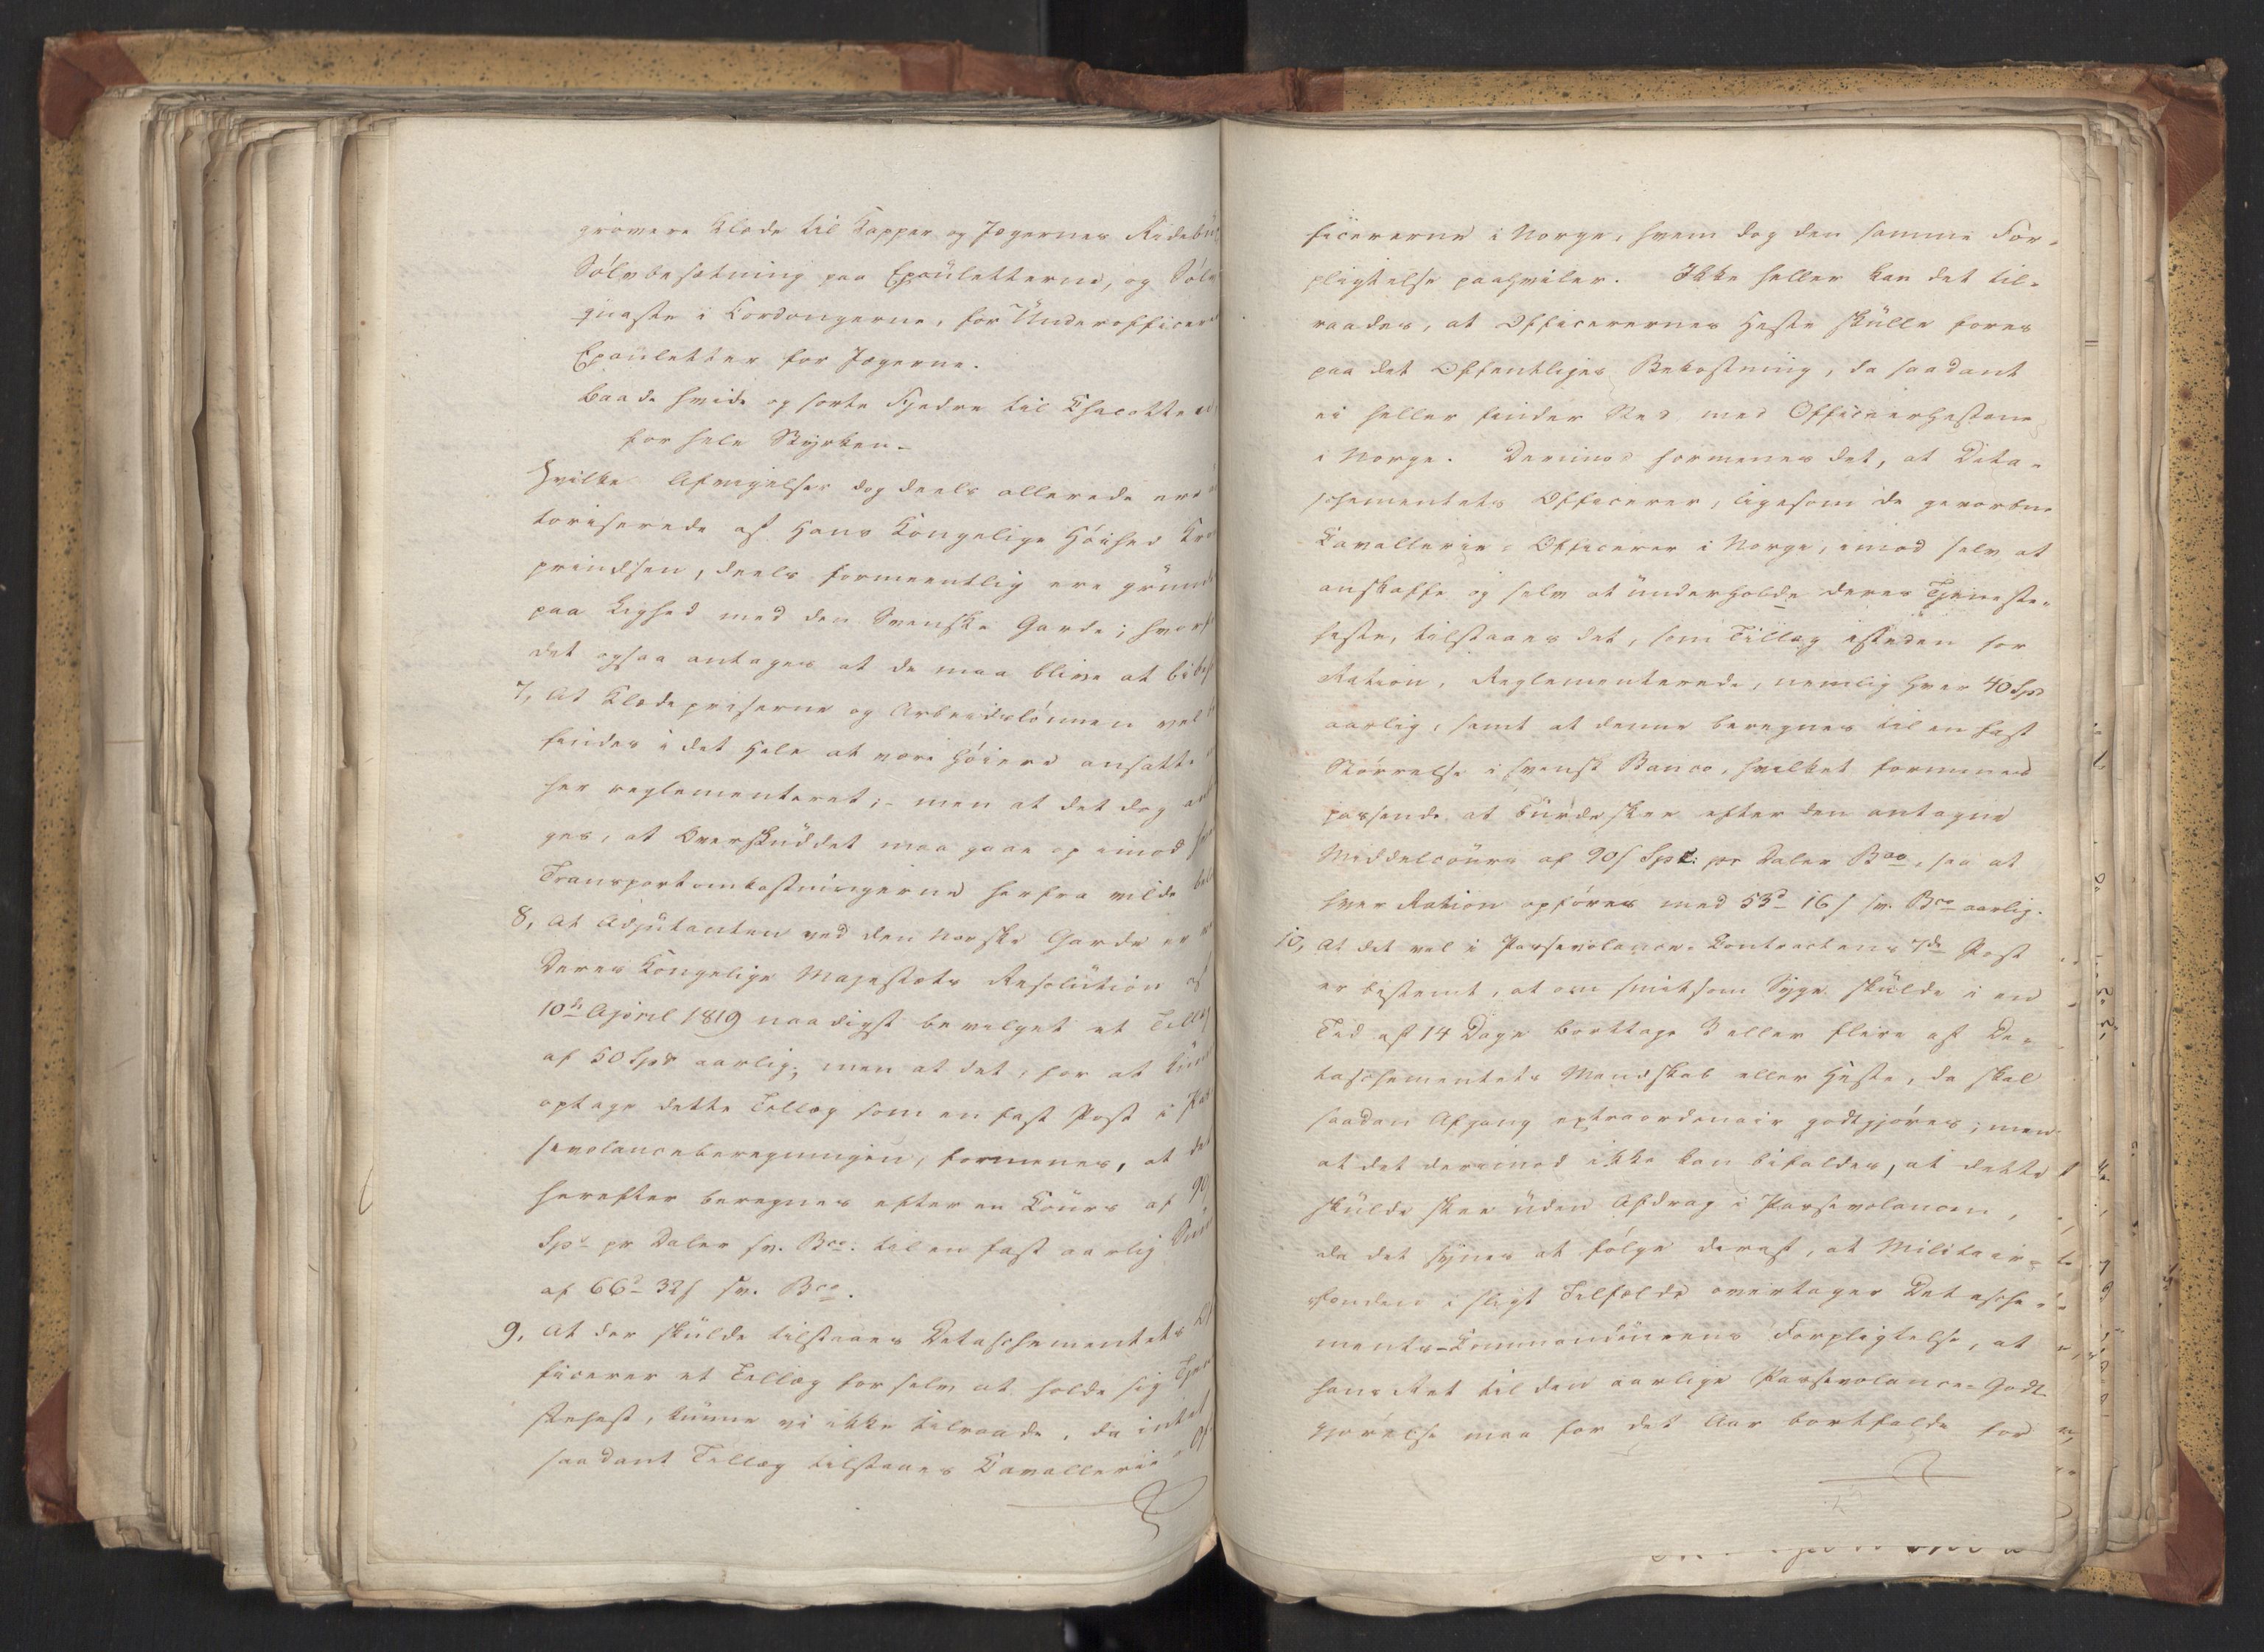 grövere Klæde til Kapper og Jægernes Ridebux
Sölvbesætning paa Epauletterne, og Sölv
quaste i Cordongerne, for Underofficerer
Epauletter for Jægerne.
Baade hvide og sorte Fjedre til Chacotterne
for hele Styrken.
Hvilke Afvigelser dog deels allerede ere
toriserede af Hans Kongelige Höihed Kron
prindsen, deels formeentlig ere grund
paa Lighed med den Svenske Garde; hvorf
det ogsaa antages at de maa blive at bibeh
7, At Klædepriserne og Arbeidslönnen vel
findes i det Hele at være höiere ansatte
her reglementeret; - men at det dog an
ges, at Overskuddet maa gaae op imod
Transportomkostningerne herfra vilde bel
8, At Adjutanten ved den Norske Garde er
Deres Kongelige Majestæts Resolution af
10de April 1819 naadigst bevilget et Tillæg
af 50 Spd aarlig; men at det, for at kun
optage dette Tillæg som en fast Post i Pas
sevolanceberegningen, formenes, at det
herefter beregnes efter en Cours af 90
Spd pr Daler sv. Bco. til en fast aarlig Sum
af 66d 32s sv. Bco.
9, At der skulde tilstaaes Detaschementets Of
ficerer et Tillæg for selv at holde sig Tjen
stehest, kunne vi ikke tilraade, da intet
saadant Tillæg tilstaaes Cavallerie-Of-
ficererne i Norge, hvem dog den samme For-
pligtelse paahviler. Ikke heller kan det til-
raades, at Officerernes Heste skulle fores
paa det Offentliges Bekostning, da saadant
ei heller finder Sted med Officeerhestene
i Norge. Derimod formenes det, at Deta-
schementets Officerer, ligesom de gevorbne
Cavallerie-Officerer i Norge, imod selv at
anskaffe og selv at underholde deres Tjeneste-
heste, tilstaaes det, som Tillæg isteden for
Ration, Reglementerede, nemlig hver 40 Spd
aarlig, samt at denne beregnes til en fast
Störrelse i svensk Banco, hvilket formenes
passende at burde skee efter den antagne
Middelcours af 90s Spec: pr Daler Bco, saa at
hver Ration opföres med 53d 16s sv. Bco aarlig.
10, At det vel i Passevolance-Contractens 7de Post
er bestemt, at om smitsom Syge skulde i en
Tid af 14 Dage borttage 3 eller flere af De-
taschementets Mandskab eller Heste, da skal
saadan Afgang extraordinair godtgjöres; men
at det derimod ikke kan bifaldes, at dette
skulde skee uden Afdrag i Passevolancen,
da det synes at fölge deraf, at Militair-
fonden i sligt Tilfælde overtager Detasche-
ments-Commandeurens Forpligtelse, at
hans Ret til den aarlige Passevolance-Godt-
gjörelse maa for det Aar bortfalde for